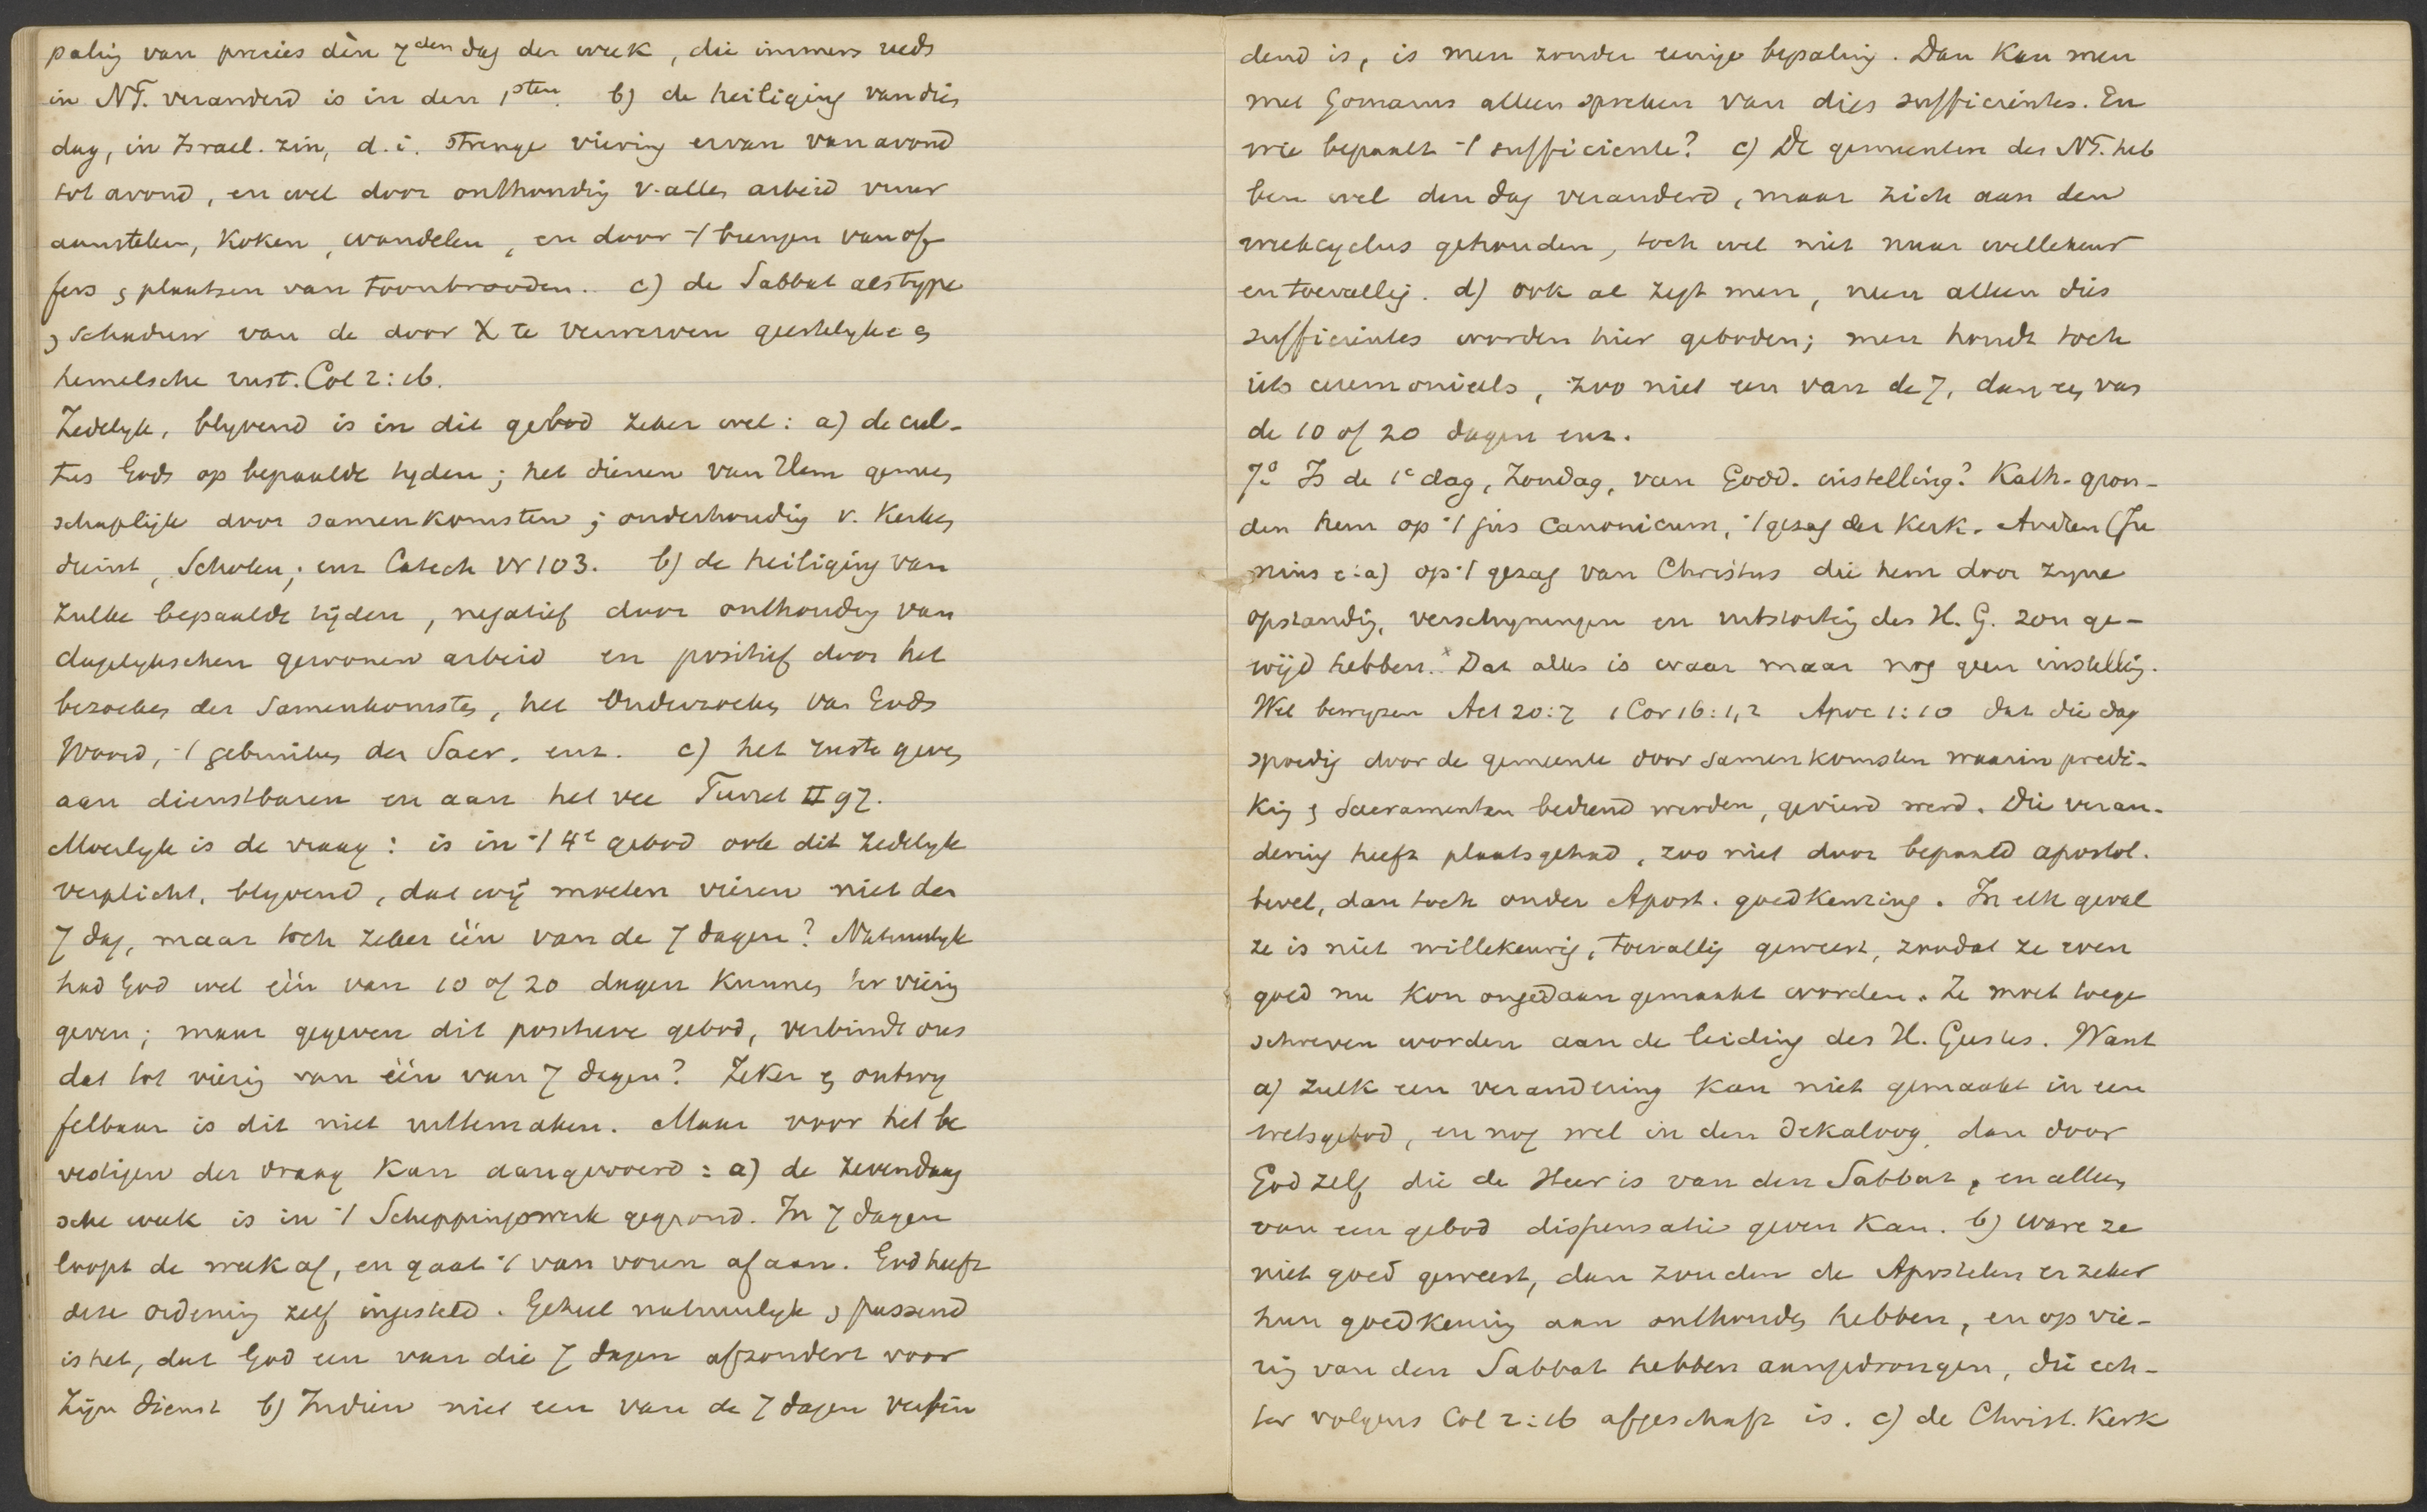 paling van precies dèn 7den dag der week, die immers reeds
in NT. veranderd is in den 1sten. b) de heiliging van dies
dag, in Israel. zin, d.i. strenge viering ervan van avond
tot avond, en wel door onthoudig v. alles arbeid vuur
aansteken, koken, wandelen, en door 't brengen van of
fers & plaatsen van toonbrooden.. c) de Sabbat als type
& schaduw van de door X te verwerven geestelyke &
hemelsche rust. Col 2:16.
Zedelyk, blyvend is in dit gebod zeker wel: a) de cul-
tus Gods op bepaalde tyden; het dienen van Hem gemeen
schaplijk door samenkomsten; onderhoudig v. Kerken
dienst, Scholen; enz Catech Vr 103. b) de heiliging van
zulke bepaalde tijden, negatief door onthoudig van
dagelykschen gewonen arbeid en positief door het
bezoeken der samenkomsten, het Onderzoeken van Gods
Woord, 't gebruiken der Sacr. enz. c) het ruste geven
aan dienstbaren en aan het vee Turret II 97.
Moeilyk is de vraag: is in 't 4e gebod ook dit zedelyk
verplicht, blyvend, dat wij moeten vieren niet den
7 dag, maar toch zeker één van de 7 dagen? Natuurlyk
had God wel één van 10 of 20 dagen kunnen ter vierig
geven; maar gegeven dit positieve gebod, verbindt ons
dat tot vierig van één van 7 dagen? Zeker & ontwy
felbaar is dit niet uittemaken. Maar voor het be
vestigen der vraag kan aangevoerd: a) de zevendaag
sche week is in 't Scheppingswerk gegrond. In 7 dagen
loopt de week af, en gaat 't van voren af aan. God heeft
deze ordenig zelf ingesteld. Geheel natuurlyk & passend
is het, dat God een van die 7 dagen afzondert voor
Zijn dienst b) Indien niet een van de 7 dagen verbin
dend is, is men zonder eenige bepaling. Dan kan men
met Gomarus alleen spreken van dies sufficientes. En
wie bepaalt 't sufficiente? c) De gemeenten des NT. heb
ben wel den dag veranderd, maar zich aan den
weekcyclus gehouden, toch wel niet naar willekeur
en toevallig. d) ook al zegt men, neen alleen dies
sufficientes worden hier geboden; men houdt toch
iets ceremonieels, zoo niet een van de 7, dan een van
de 10 of 20 dagen enz.
7o Is de 1e dag, Zondag, van Godd. instelling? Kath. gron-
den hem op 't jus Canonicum, 't gezag der Kerk. Andren (Ju
nius e:a) op 't gezag van Christus die hem door zyne
opstandig, verschyningen en uitstortig des H. G. zou ge-
wijd hebben.x Dat alles is waar maar nog geen instellig.
Wel bewyzen Act 20:7 1 Cor 16:1,2 Apoc 1:10 dat die dag
spoedig door de gemeente door samenkomsten waarin predi-
king & Sacramenten bediend werden, gevierd werd. Die veran-
dering heeft plaatsgehad, zoo niet door bepaald apostol.
bevel, dan toch onder Apost. goedkeuring. In elk geval
ze is niet willekeurig, toevallig geweest, zoodat ze even
goed nu kon ongedaan gemaakt worden. Ze moet toege
schreven worden aan de leiding des H. Geestes. Want
a) zulk een verandering kan niet gemaakt in een
wetsgebod, en nog wel in den Dekaloog, dan door
God zelf die de Heer is van den Sabbat, en alleen
van een gebod dispensatie geven kan. b) Ware ze
niet goed geweest, dan zouden de Apostelen er zeker
hun goedkeurig aan onthouden hebben, en op vie-
rig van den Sabbat hebben aangedrongen, die ech-
ter volgens Col 2:16 afgeschaft is. c) de Christ. Kerk